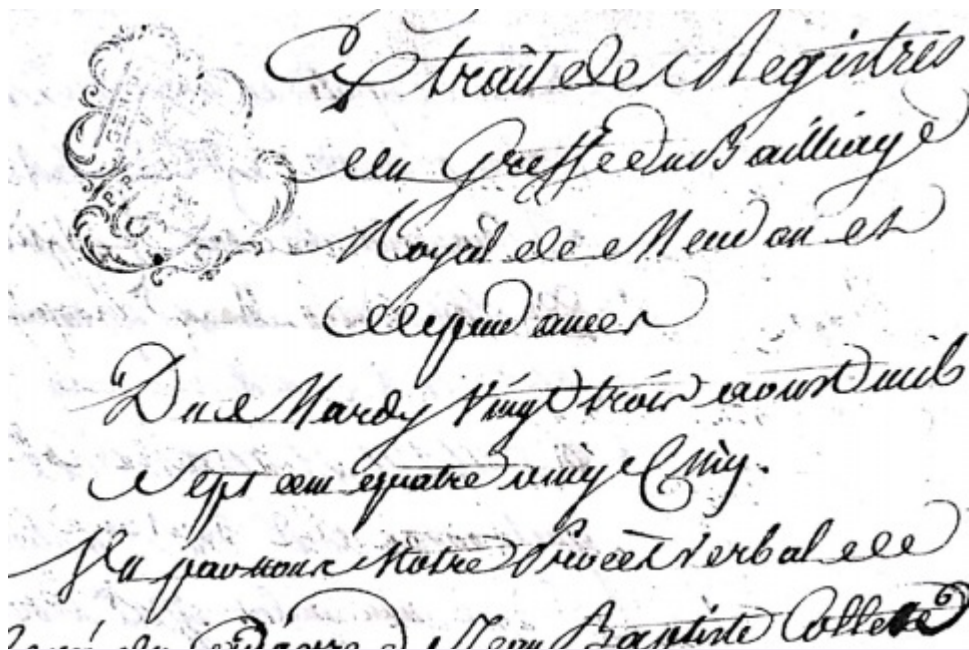 Extrait de Registres
du Greffe du Bailliage
Royal de Meudon et
dependances
Du Mardy Vingt trois aoust mil
Sept cent quatre vingt Cinq.
Vu par nous Notre Procès Verbal de
du Cadavre de Jean Baptiste Collette